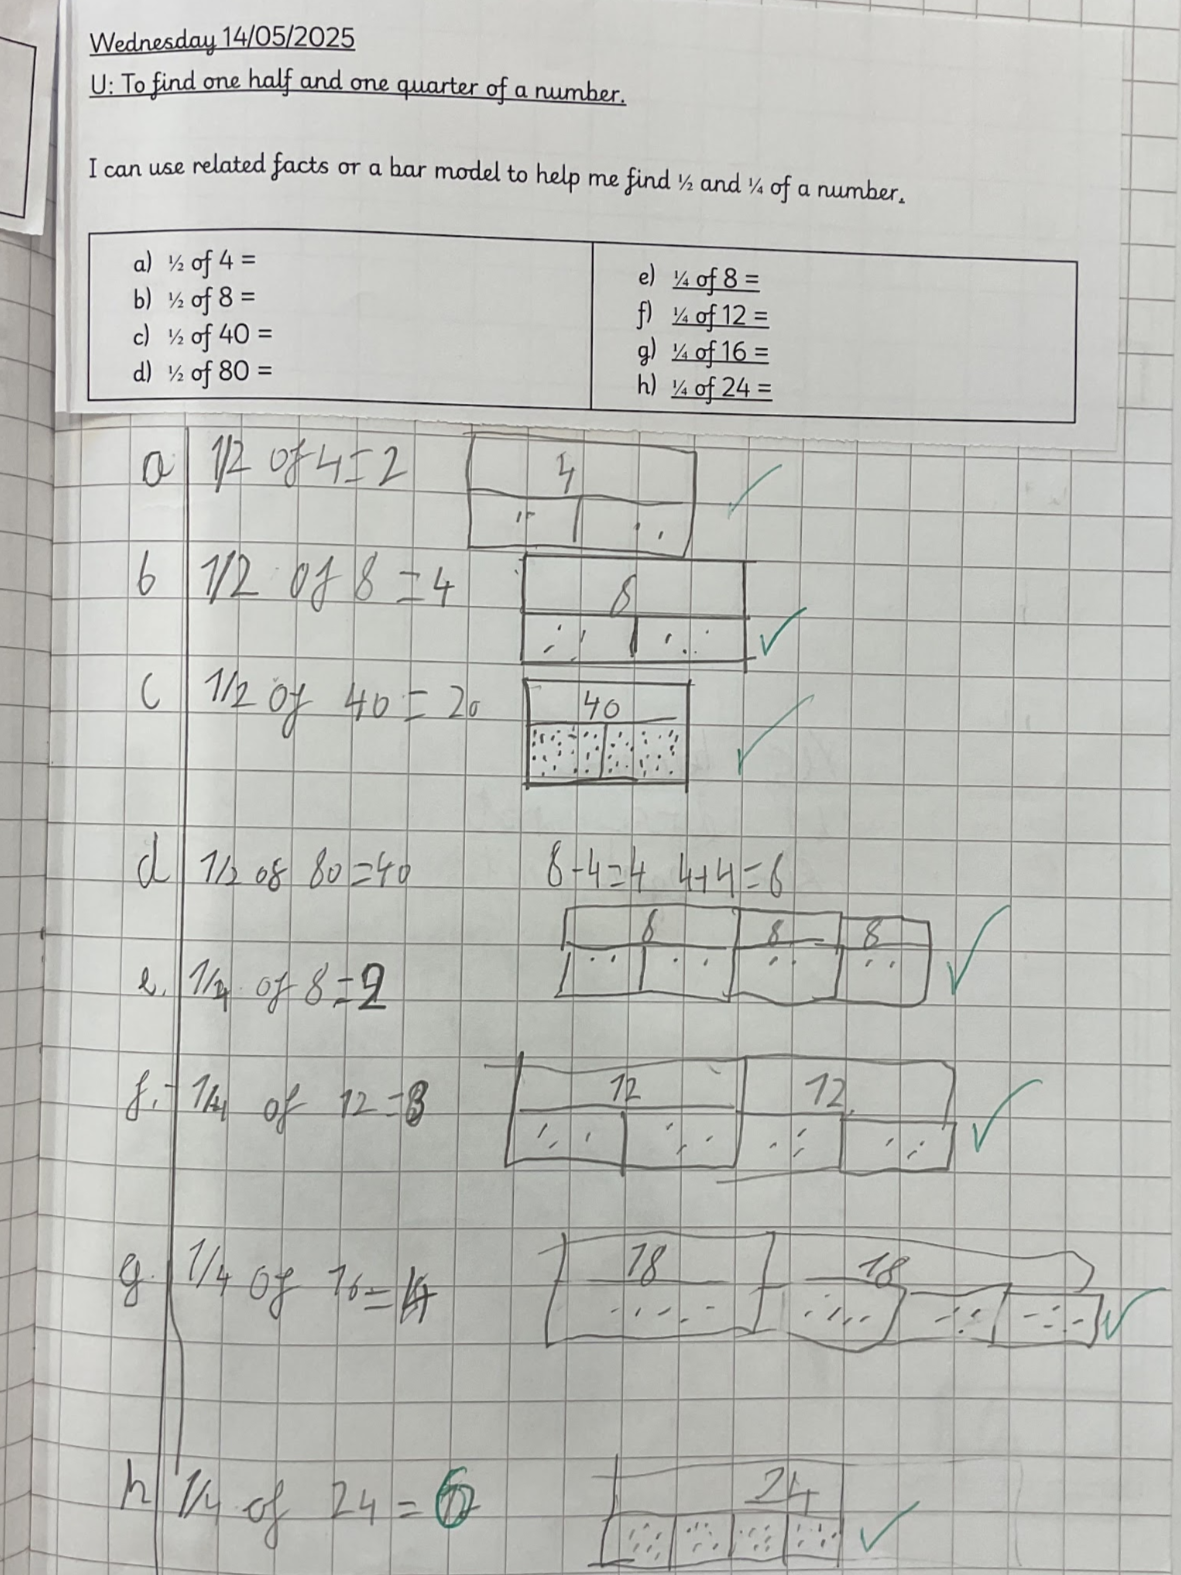 Wednesday 14/05/2025
U: To find one half and one quarter of a number.
I can use related facts or a bar model to help me find ½ and ¼ of a number.
a) ½ of 4 =
b) ½ of 8 =
c) ½ of 40 =
d) ½ of 80 =
e) ¼ of 8 =
f) ¼ of 12 =
g) ¼ of 16 =
h) ¼ of 24 =
a 1/2 of 4=2 4
b 1/2 of 8=4 8
c 1/2 of 40=20 40
d 1/2 of 80=40 8-4=4 4+4=8
8 8 8
e. 1/4 of 8=2
f. 1/4 of 12=3 12 12
g. 1/4 of 16=4 18 18
h 1/4 of 24=6 24